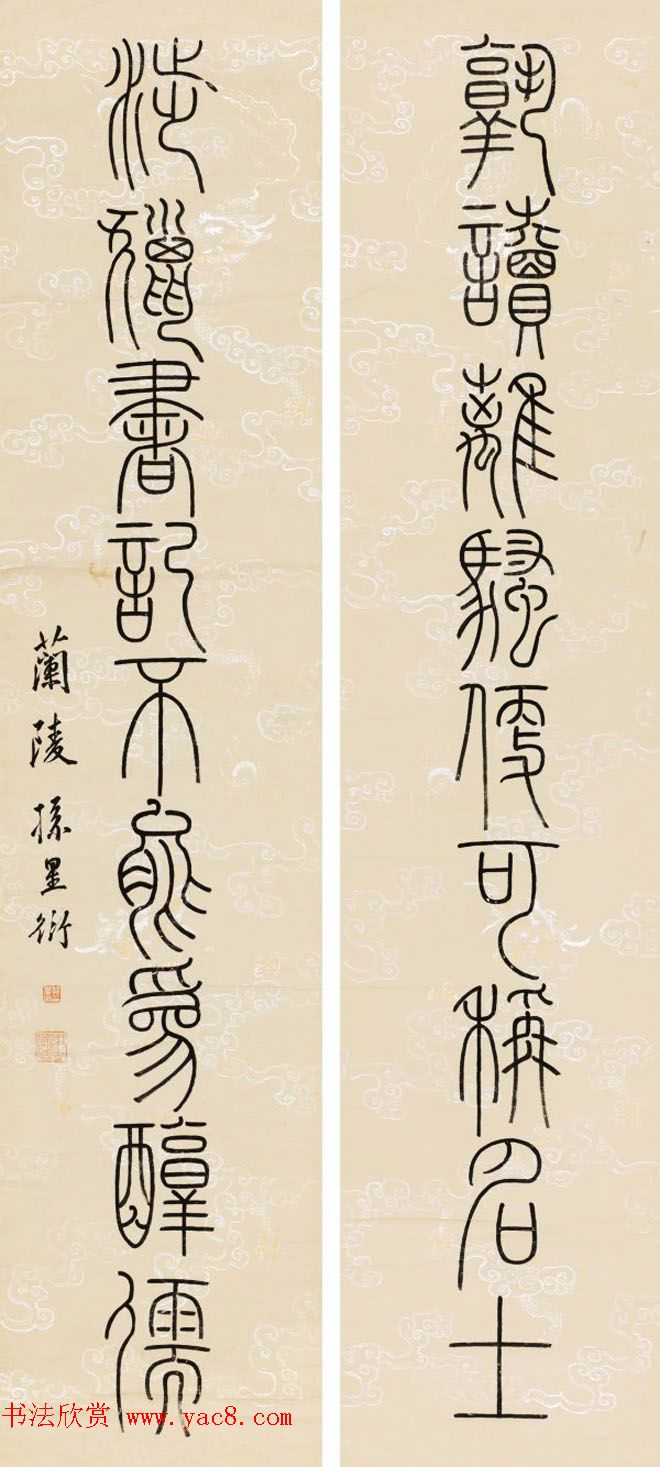 孰讀離騷便可稱名士
涉獵書記不能為醇儒
蘭陵孫星衍
书法欣赏 www.yac8.com